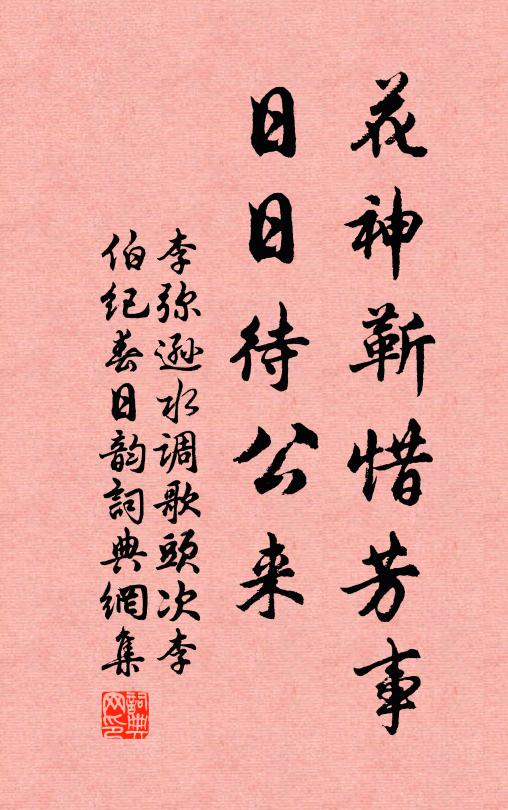 花神蕲惜芳事
日日待公来
李弥逊水调歌頭次李
伯纪春日韵詞典網集
詞典网印